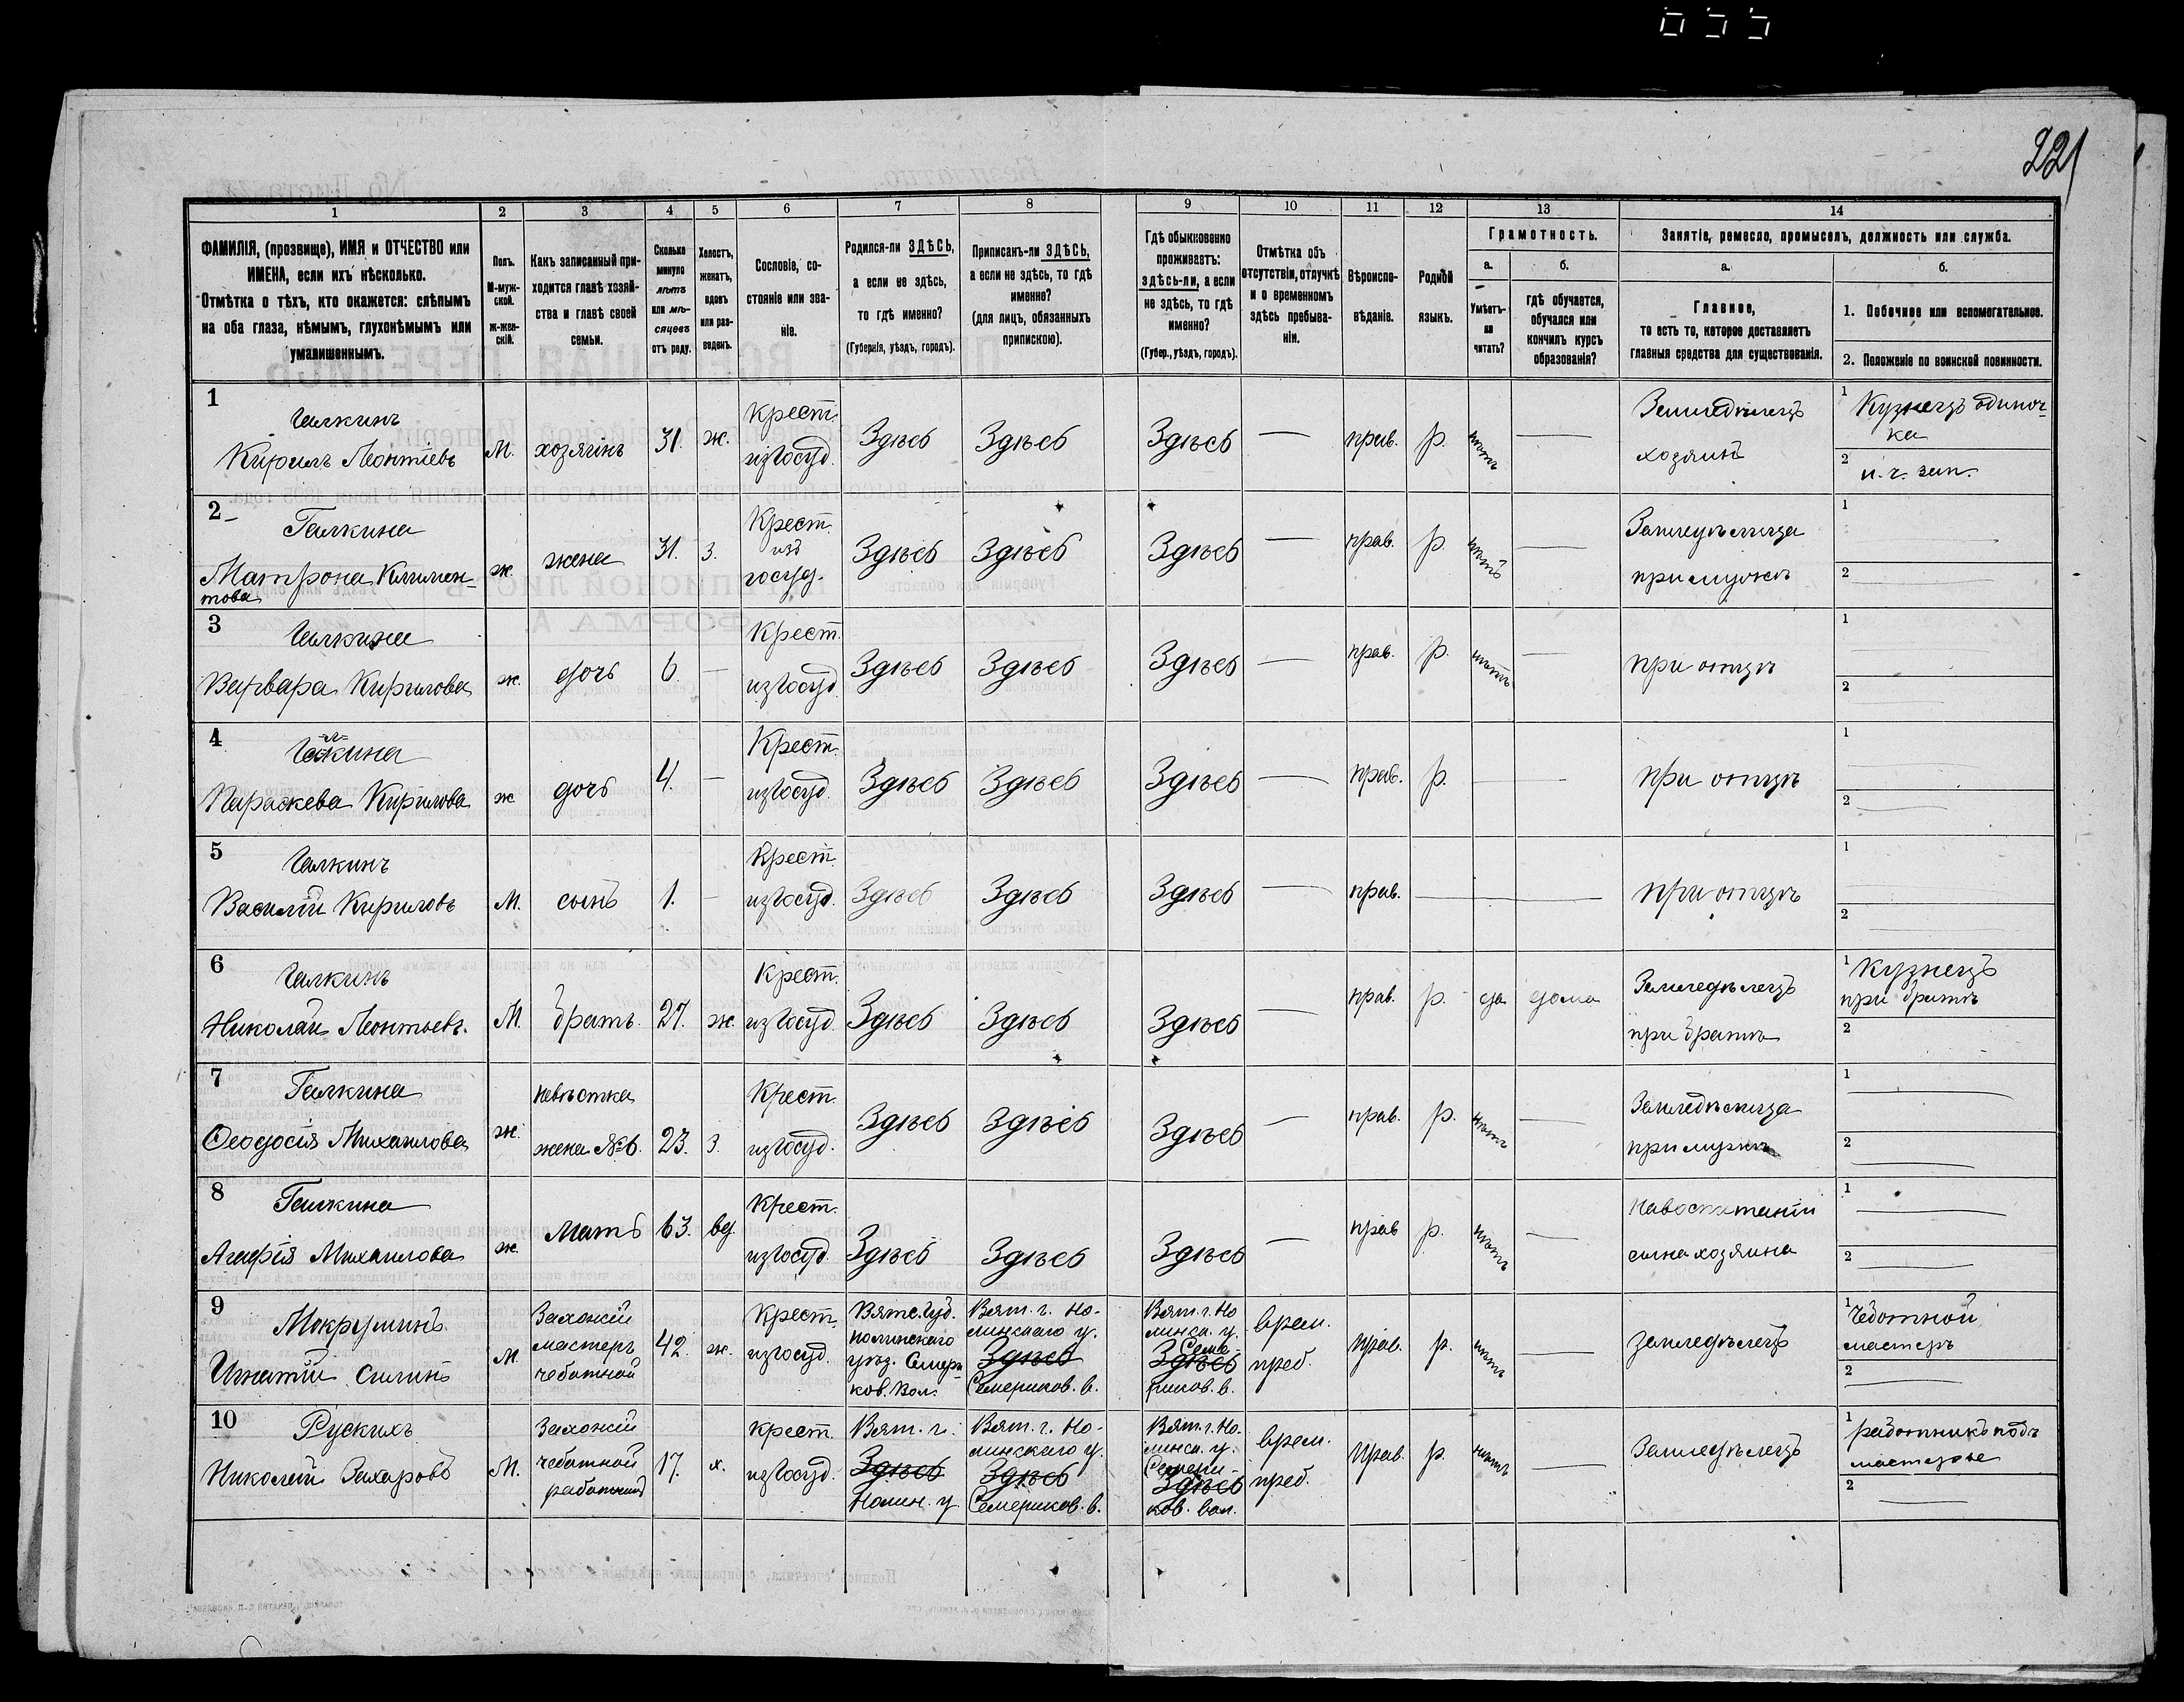 221
1 2 3 4 5 6 7 8 9 10 11 12 13 14
ФАМИЛІЯ, (прозвище), ИМЯ и ОТЧЕСТВО или
ИМЕНА, если ихъ нѣсколько.
Отмѣтка о тѣхъ, кто окажется: слѣпымъ
на оба глаза, нѣмымъ, глухонѣмымъ или
умалишеннымъ.
Полъ.
М-муж-
ской.
ж-жен-
скій.
Какъ записанный при-
ходится главѣ хозяй-
ства и главѣ своей
семьи.
Сколько
минуло
лѣтъ
или мѣ-
сяцевъ
отъ роду.
Холостъ,
женатъ,
вдовъ
или раз-
веденъ.
Сословіе, со-
стояніе или зва-
ніе.
Родился-ли ЗДѢСЬ,
а если не здѣсь,
то гдѣ именно?
(Губернія, уѣздъ, городъ).
Приписанъ-ли ЗДѢСЬ,
а если не здѣсь, то гдѣ
именно?
(для лицъ, обязанныхъ
припискою).
Гдѣ обыкновенно
проживаетъ:
здѣсь-ли, а если
не здѣсь, то гдѣ
именно?
(Губер., уѣздъ, городъ).
Отмѣтка объ
отсутствіи, отлучкѣ
и о временномъ
здѣсь пребыва-
ніи.
Вѣроиспо-
вѣданіе.
Родной
языкъ.
Грамотность.
а.
Умѣетъ-
ли
читать?
б.
гдѣ обучается,
обучался или
кончилъ курсъ
образованія?
Занятіе, ремесло, промыселъ, должность или служба.
а.
Главное,
то есть то, которое доставляетъ
главныя средства для существованія.
б.
1. Побочное или вспомогательное.
2. Положеніе по воинской повинности.
1
Галкинъ
Кирилъ Леонтіевъ
М.
хозяинъ
31.
ж.
Крест.
изъ госуд.
Здѣсь
Здѣсь
Здѣсь
прав.
р.
нѣтъ
Земледѣлецъ
хозяинъ
1 Кузнецъ одиноч-
ка
2 н. ч. зап.
2
Галкина
Матрона Климен-
това
ж.
жена
31.
з.
Крест.
изъ
госуд.
Здѣсь
Здѣсь
Здѣсь
прав.
р.
нѣтъ
Земледѣлица
при мужѣ
1
2
3
Галкина
Варвара Кирилова
ж.
дочь
6.
Крест.
изъ госуд.
Здѣсь
Здѣсь
Здѣсь
прав.
р.
нѣтъ
при отцѣ
1
2
4
Галкина
Параскева Кирилова
ж
дочь
4.
Крест.
изъ госуд.
Здѣсь
Здѣсь
Здѣсь
прав.
р.
при отцѣ
1
2
5
Галкинъ
Василій Кириловъ
М.
сынъ
1.
Крест.
изъ госуд.
Здѣсь
Здѣсь
Здѣсь
прав.
при отцѣ
1
2
6
Галкинъ
Николай Леонтьевъ.
М.
братъ.
27.
ж.
Крест.
изъ госуд.
Здѣсь
Здѣсь
Здѣсь
прав.
р.
да
дома
Земледѣлецъ
при братѣ
1 Кузнецъ
при братѣ
2
7
Галкина
Феодосія Михаилова
ж.
невѣстка
жена №6.
23.
з.
Крест.
изъ госуд.
Здѣсь
Здѣсь
Здѣсь
прав.
р.
нѣтъ
Земледѣлица
при мужѣ
1
2
8
Галкина
Агафія Михаилова
ж.
мать
63.
вд.
Крест.
изъ госуд.
Здѣсь
Здѣсь
Здѣсь
прав
р.
нѣтъ
На воспитаніи
сына хозяина
1
2
9
Мокрушинъ
Игнатій Силинъ
М.
Захожій
мастеръ
чеботной
42.
ж.
Крест.
изъ госуд.
Вятс. губ.
Нолинскаго
уѣз. Семери-
ков. вол.
Вят. г. Но-
линскаго у.
Здѣсь
Семериков. в.
Вят. г. Но
линск. у.
Семе-
Здѣсь
риков. в.
врем.
преб.
прав.
р.
нѣтъ
земледѣлецъ
1 Чеботной
мастеръ
2
10
Рускихъ
Николай Захаровъ
М.
Захожій
чеботной
работникъ
17.
х.
крест.
изъ госуд.
Вят. г.
Здѣсь
Нолин. у.
Вят. г. Но-
линскаго у.
Здѣсь
Семериков. в.
Вят. г. Но-
линск. у.
Семери-
Здѣсь
ков. вол.
врем.
преб.
прав.
р.
нѣтъ
Земледѣлецъ
1 работникъ подъ
мастерье
2